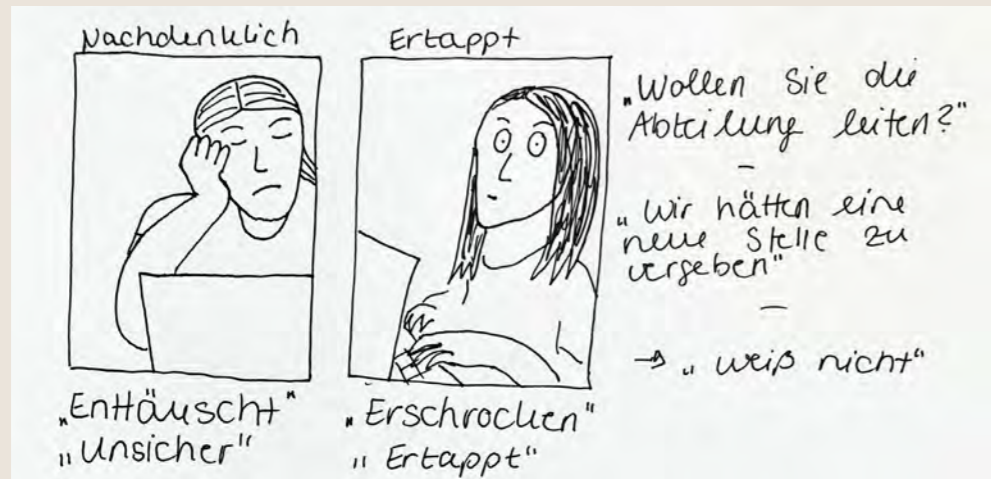 Nachdenklich
Ertappt
„Enttäuscht"
„Unsicher"
„Erschrocken"
„Ertappt"
„Wollen Sie die
Abteilung leiten?"
–
„Wir hätten eine
neue Stelle zu
vergeben"
–
→ „weiß nicht"